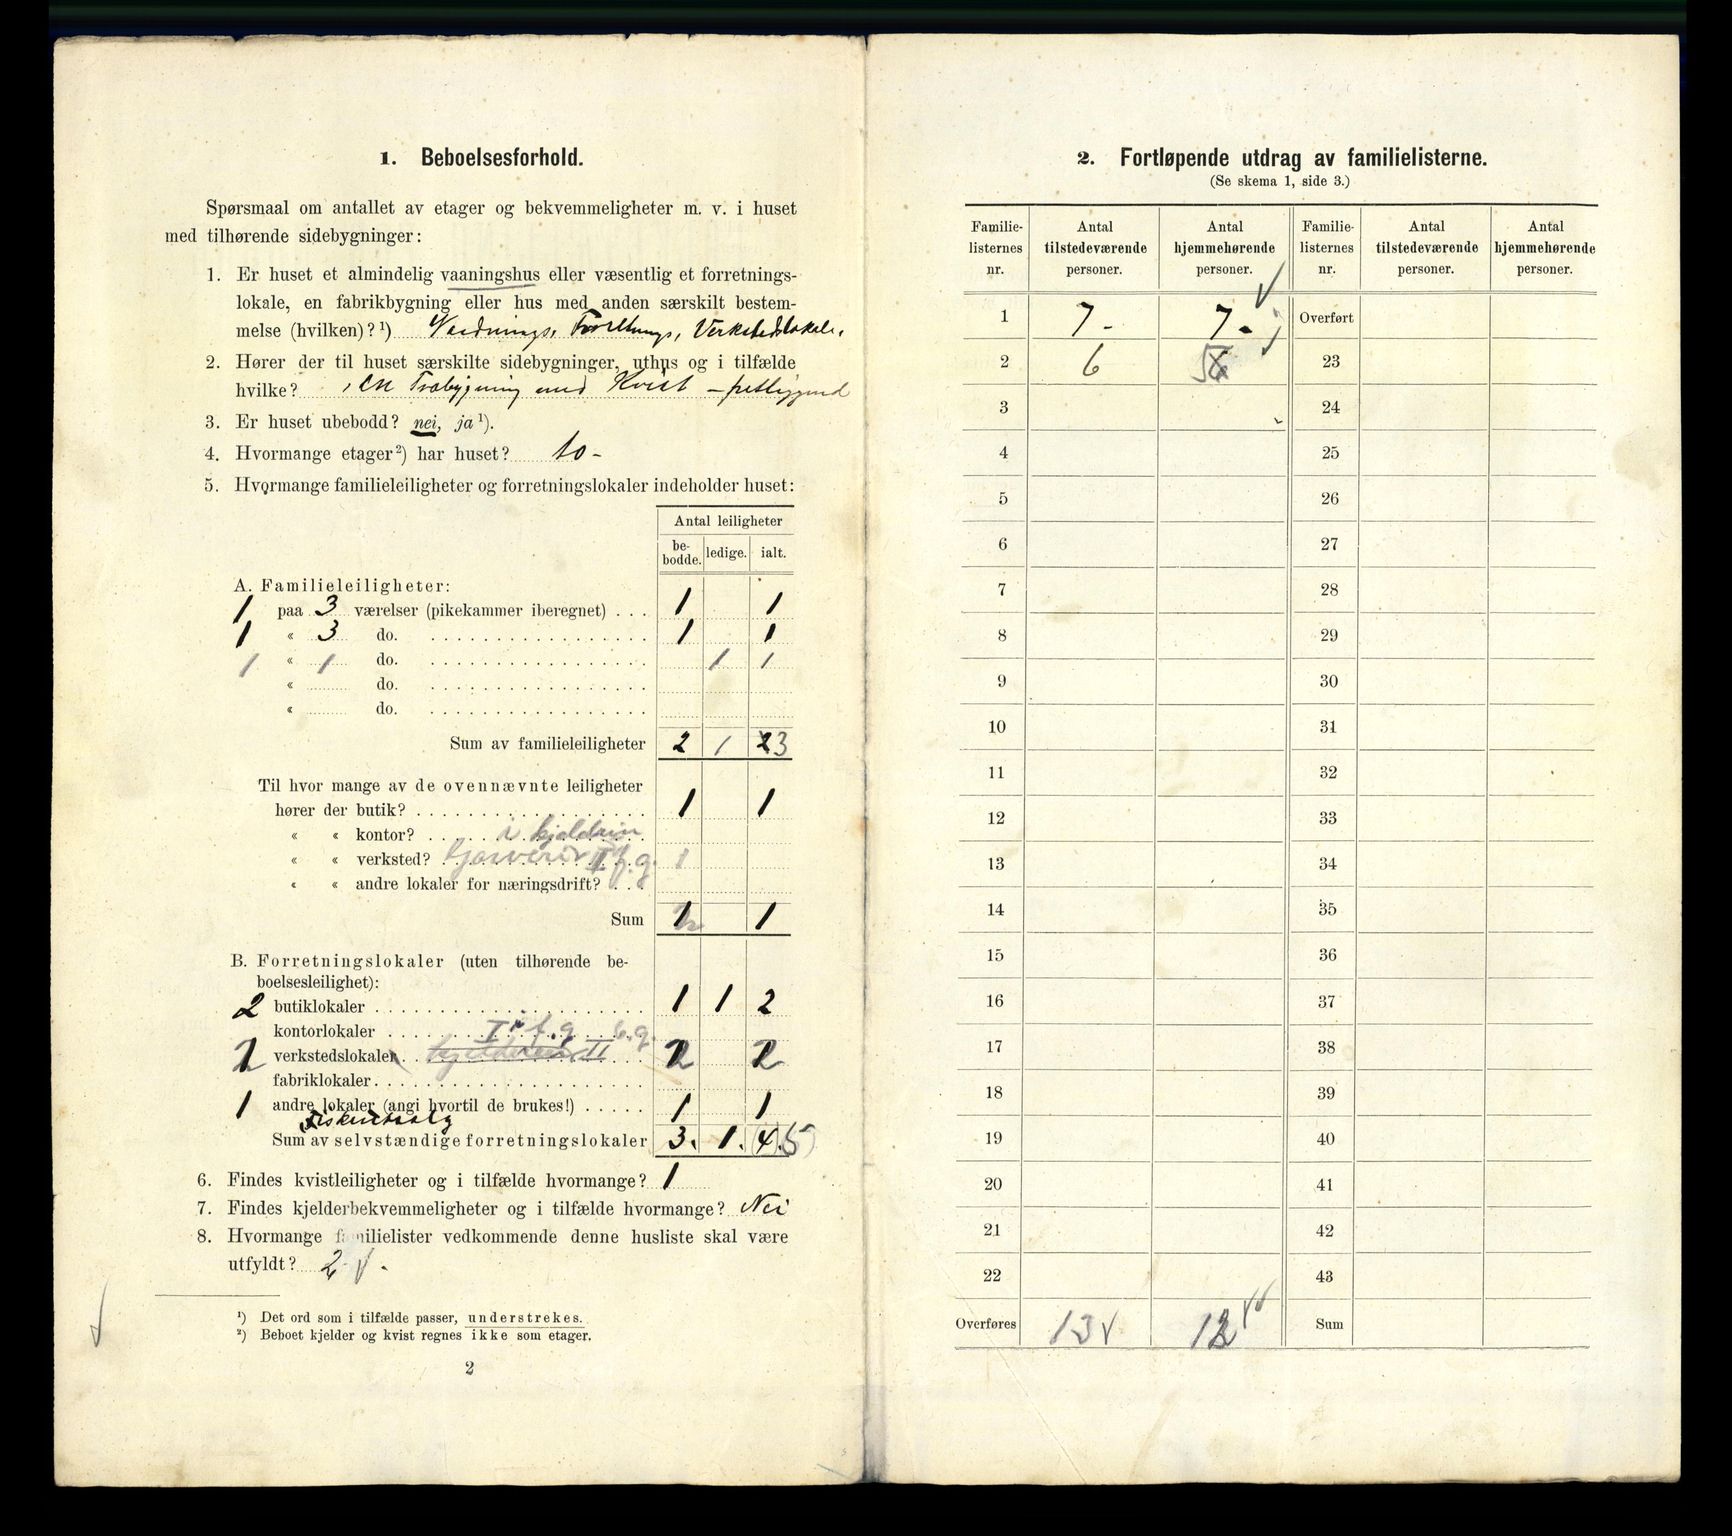 1. Beboelsesforhold.
Spørsmaal om antallet av etager og bekvemmeligheter m. v. i huset
med tilhørende sidebygninger:
1. Er huset et almindelig vaaningshus eller væsentlig et forretnings-
lokale, en fabrikbygning eller hus med anden særskilt bestem-
melse (hvilken)? ¹) Forretnings, Verkstedslokale.
2. Hører der til huset særskilte sidebygninger, uthus og i tilfælde
hvilke? 1 en Træbygning med Kvist –
3. Er huset ubebodd? nei, ja ¹).
4. Hvormange etager ²) har huset? to -
5. Hvormange familieleiligheter og forretningslokaler indeholder huset:
Antal leiligheter
be-bodde. ledige. ialt.
A. Familieleiligheter:
1 paa 3 værelser (pikekammer iberegnet) . . . 1 1
1 « 3 do. 1 1
1 « 1 do. 1 1
« do.
« do.
Sum av familieleiligheter 2 1 2 3
Til hvor mange av de ovennævnte leiligheter
hører der butik? 1 1
« « kontor? i
« « verksted? 1
« « andre lokaler for næringsdrift? . . .
Sum 1 1
B. Forretningslokaler (uten tilhørende be-
boelsesleilighet):
2 butiklokaler 1 1 2
kontorlokaler
2 verkstedslokaler 2 2
fabriklokaler
1 andre lokaler (angi hvortil de brukes!) 1 1
Fiskeutsalg
Sum av selvstændige forretningslokaler 3. 1. (4). 5)
6. Findes kvistleiligheter og i tilfælde hvormange? 1
7. Findes kjelderbekvemmeligheter og i tilfælde hvormange? Nei
8. Hvormange familielister vedkommende denne husliste skal være
utfyldt? 2 -
¹) Det ord som i tilfælde passer, understrekes.
²) Beboet kjelder og kvist regnes ikke som etager.
2
2. Fortløpende utdrag av familielisterne.
(Se skema 1, side 3.)
Familie-listernes nr. Antal tilstedeværende personer. Antal hjemmehørende personer. Familie-listernes nr. Antal tilstedeværende personer. Antal hjemmehørende personer.
1 7 - 7 - Overført
2 6 5 23
3 24
4 25
5 26
6 27
7 28
8 29
9 30
10 31
11 32
12 33
13 34
14 35
15 36
16 37
17 38
18 39
19 40
20 41
21 42
22 43
Overføres 13 12 Sum